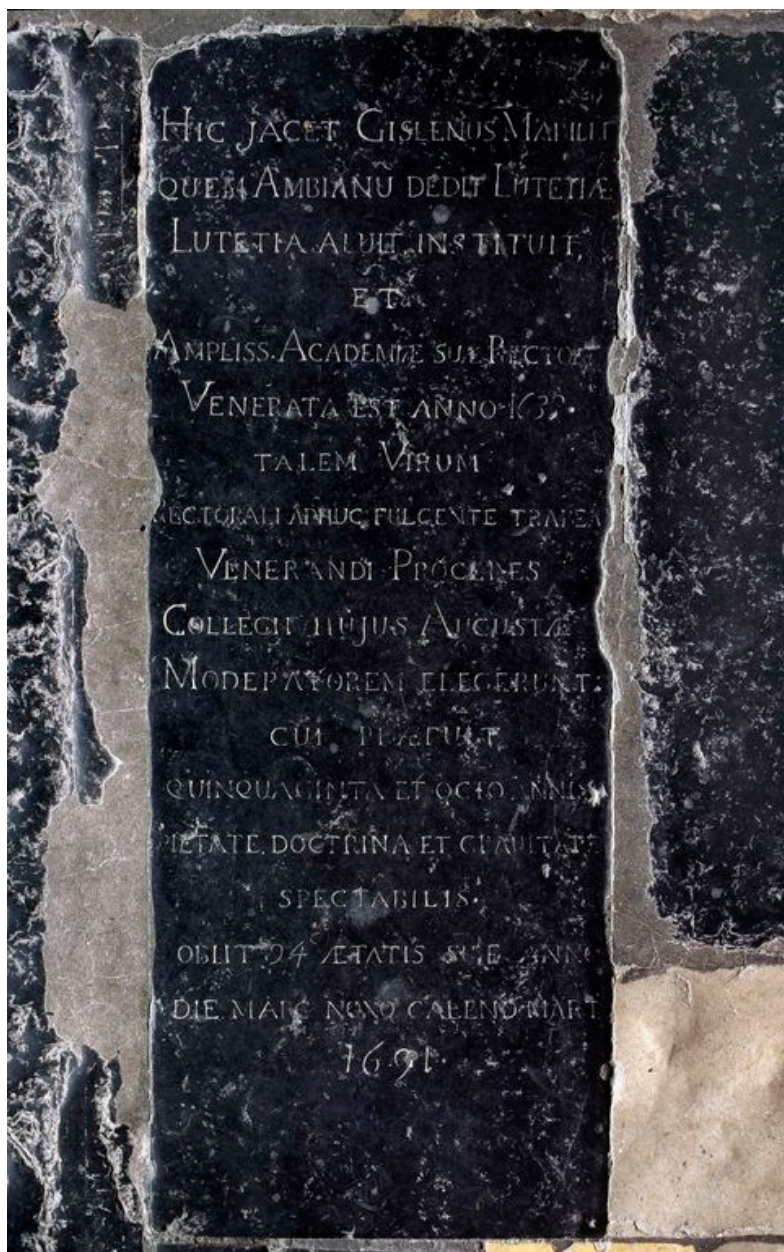 HIC JACET GISLENUS
QUEM AMBIANŪ DEDIT LUTETIÆ
LUTETIA ALUIT INSTITUIT,
ET
AMPLISS. ACADEMIÆ SUÆ RECTOR
VENERATA EST ANNO
TALEM VIRUM
RECTORALI ADHUC FULGENTE TRABEA
VENERANDI PROCERES
COLLEGII HUJUS AUGUSTÆ
MODERATOREM ELEGERUNT.
CUI PRÆFUIT
QUINQUAGINTA ET OCTO ANNIS
PIETATE, DOCTRINA ET GRAVITATE
SPECTABILIS.
OBIIT 94° ÆTATIS SUÆ ANNO
DIE NONO CALEND MART
1691.